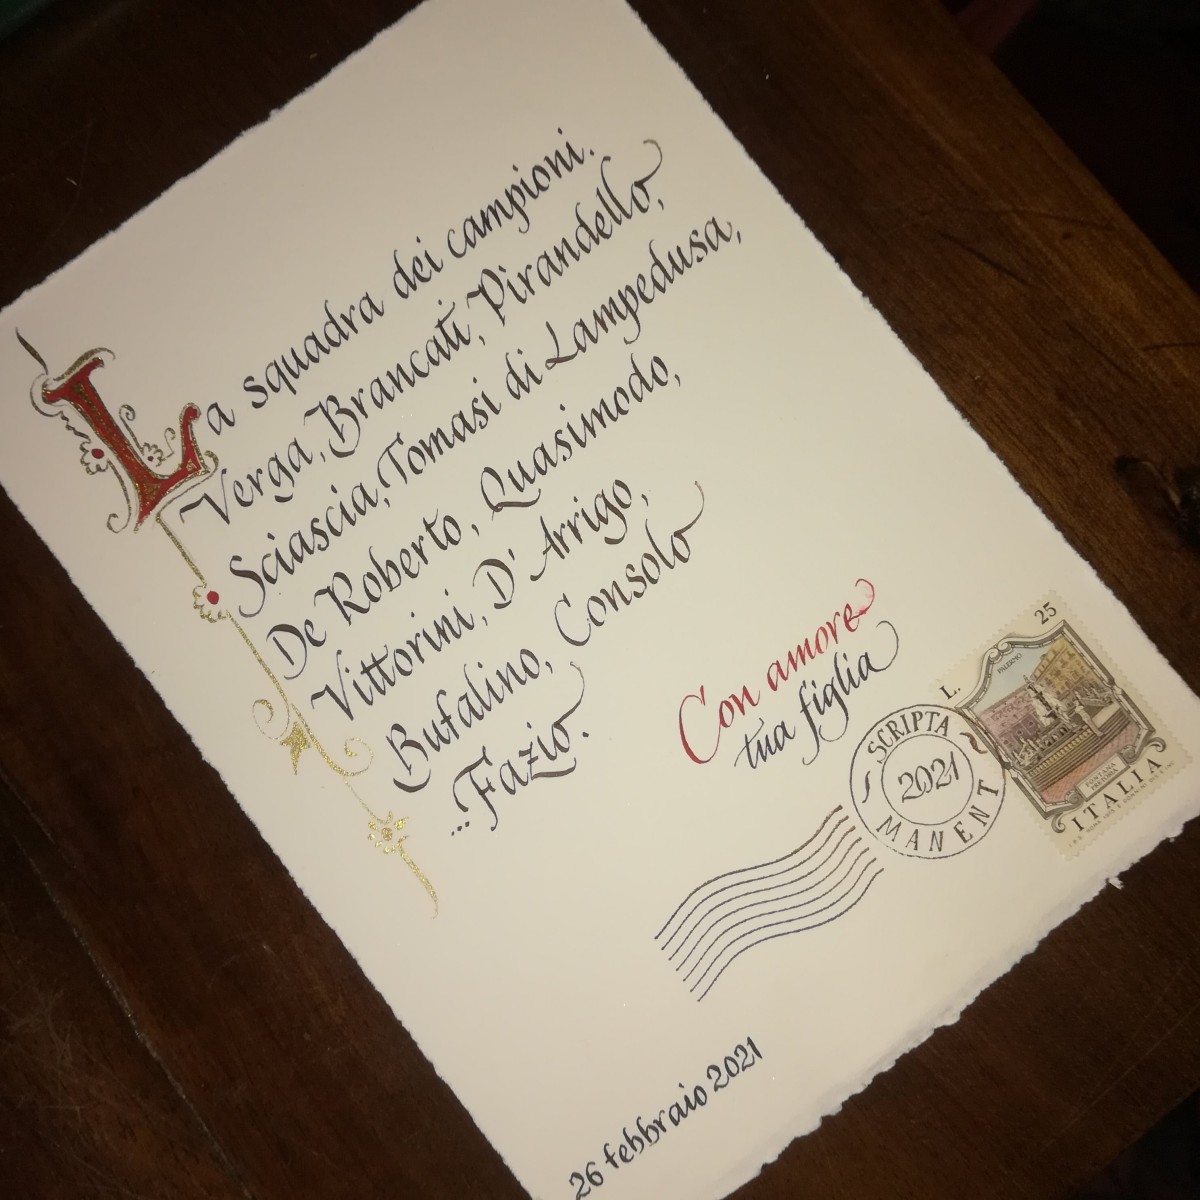 La squadra dei campioni.
Verga, Brancati, Pirandello,
Sciascia, Tomasi di Lampedusa,
De Roberto, Quasimodo,
Vittorini, D'Arrigo,
Bufalino, Consolo
...Fazio.
Con amore
tua figlia
SCRIPTA
2021
MANENT
L. 25
PALERMO
FONTANA
PRETORIA
ITALIA
26 febbraio 2021